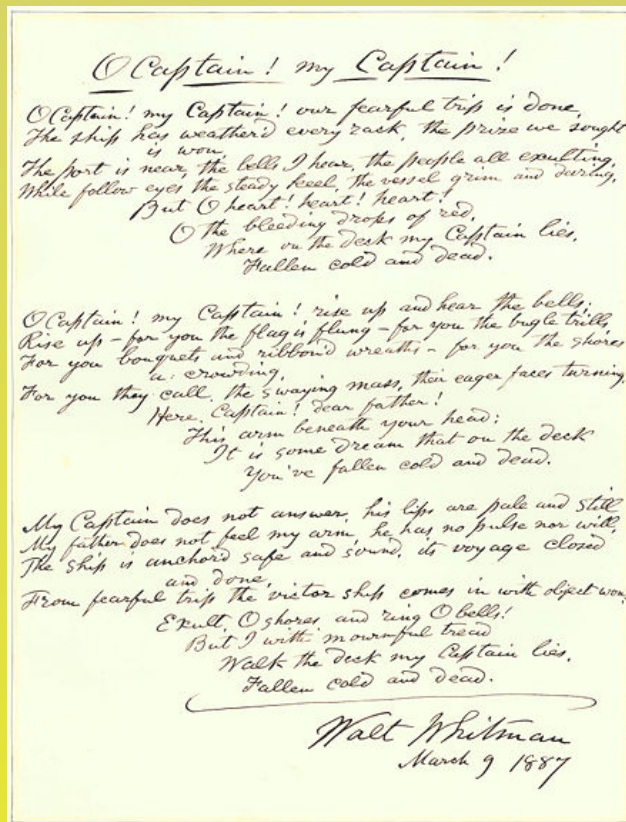 O Captain! my Captain!
O Captain! my Captain! our fearful trip is done,
The ship has weather'd every rack, the prize we sought
is won,
The port is near, the bells I hear, the people all exulting,
While follow eyes the steady keel, the vessel grim and daring,
But O heart! heart! heart!
O the bleeding drops of red,
Where on the deck my Captain lies,
Fallen cold and dead.
O Captain! my Captain! rise up and hear the bells;
Rise up – for you the flag is flung – for you the bugle trills
For you bouquets and ribbon'd wreaths – for you the shores
a-crowding,
For you they call, the swaying mass, their eager faces turning,
Here, Captain! dear father!
This arm beneath your head;
It is some dream that on the deck
You've fallen cold and dead.
My Captain does not answer, his lips are pale and still
My father does not feel my arm, he has no pulse nor will,
The ship is anchor'd safe and sound, its voyage closed
and done,
From fearful trip the victor ship comes in with object won;
Exult, O shores, and ring O bells!
But I with mournful tread
Walk the deck my Captain lies,
Fallen cold and dead.
Walt Whitman
March 9 1887